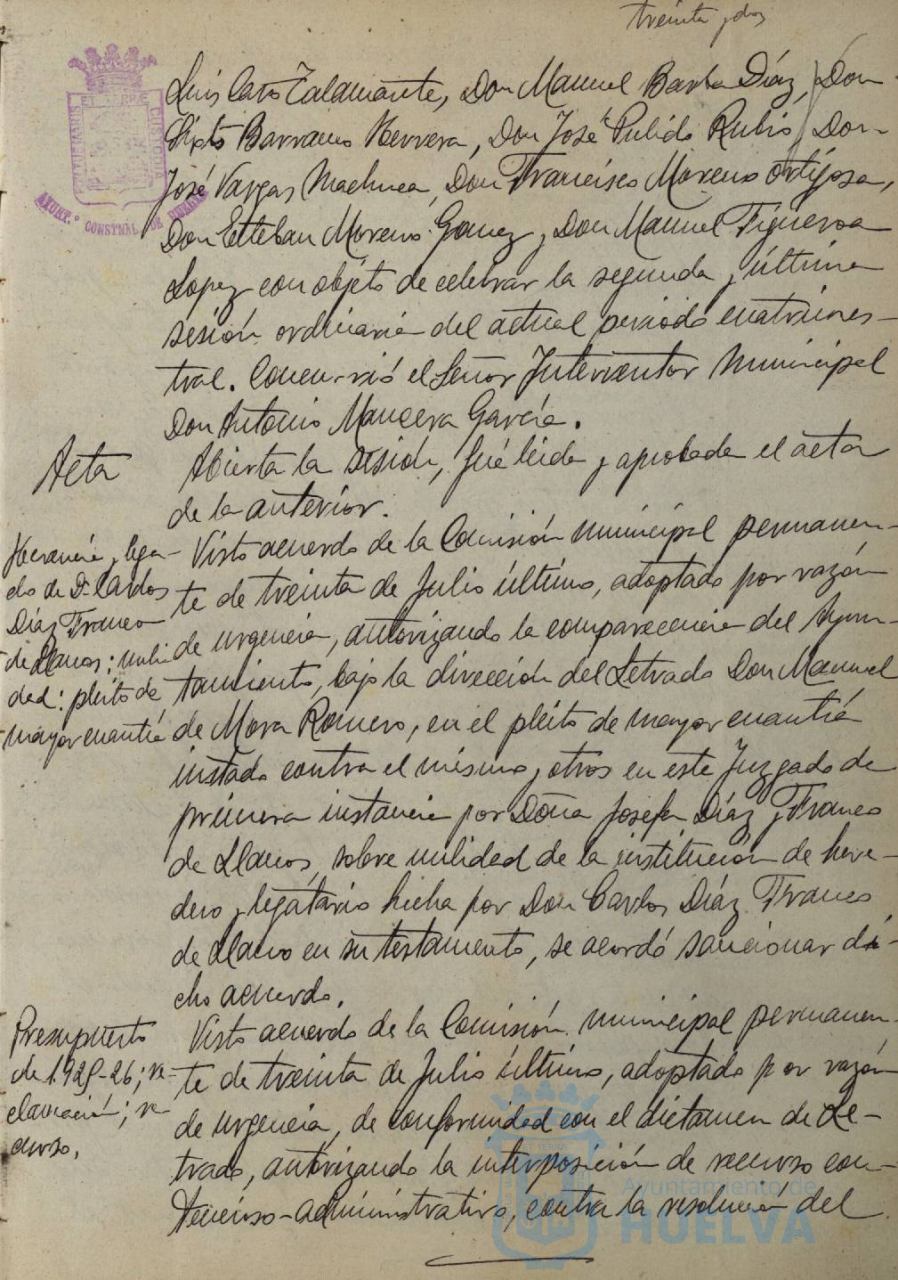 treinta y dos
Luis Caro Talamante, Don Manuel Barba Díaz, Don
Sixto Barranco Herrera, Don José Pulido Rubio, Don
José Vargas Machuca, Don Francisco Moreno Ortijosa,
Don Esteban Moreno Gomez y Don Manuel Figueroa
Lopez con objeto de celebrar la segunda y última
sesión ordinaria del actual periodo cuatrimes-
tral. Concurrió el Señor Interventor Municipal
Don Antonio Mancera García.
Acta
Abierta la sesión, fué leida y aprobada el acta
de la anterior.
Herencia y lega-
do de Dn. Carlos
Díaz Franco
de Llanos; nuli
dad: pleito de
mayor cuantía
Visto acuerdo de la Comisión municipal permanen-
te de treinta de Julio último, adoptado por razón
de urgencia, autorizando la comparecencia del Ayun-
tamiento, bajo la dirección del Letrado Don Manuel
de Mora Romero, en el pleito de mayor cuantía
instado contra el mismo y otros en este Juzgado de
primera instancia por Doña Josefa Díaz y Franco
de Llanos, sobre nulidad de la institución de here-
dero y legatario hecha por Don Carlos Díaz Franco
de Llano en su testamento, se acordó sancionar di-
cho acuerdo.
Presupuesto
de 1925-26; re-
clamación; re-
curso.
Visto acuerdo de la Comisión municipal permanen-
te de treinta de Julio último, adoptado por razón
de urgencia, de conformidad con el dictamen de Le-
trado, autorizando la interposición de recurso con-
tencioso-administrativo, contra la resolución del
Ayuntamiento de
HUELVA